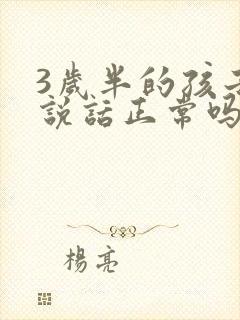 3歲半的孩
說話正常嗎
楊亮